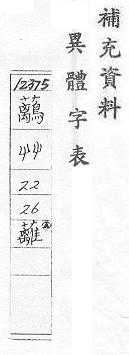 補充資料
異體字表
12375
艸
22
26
蘺